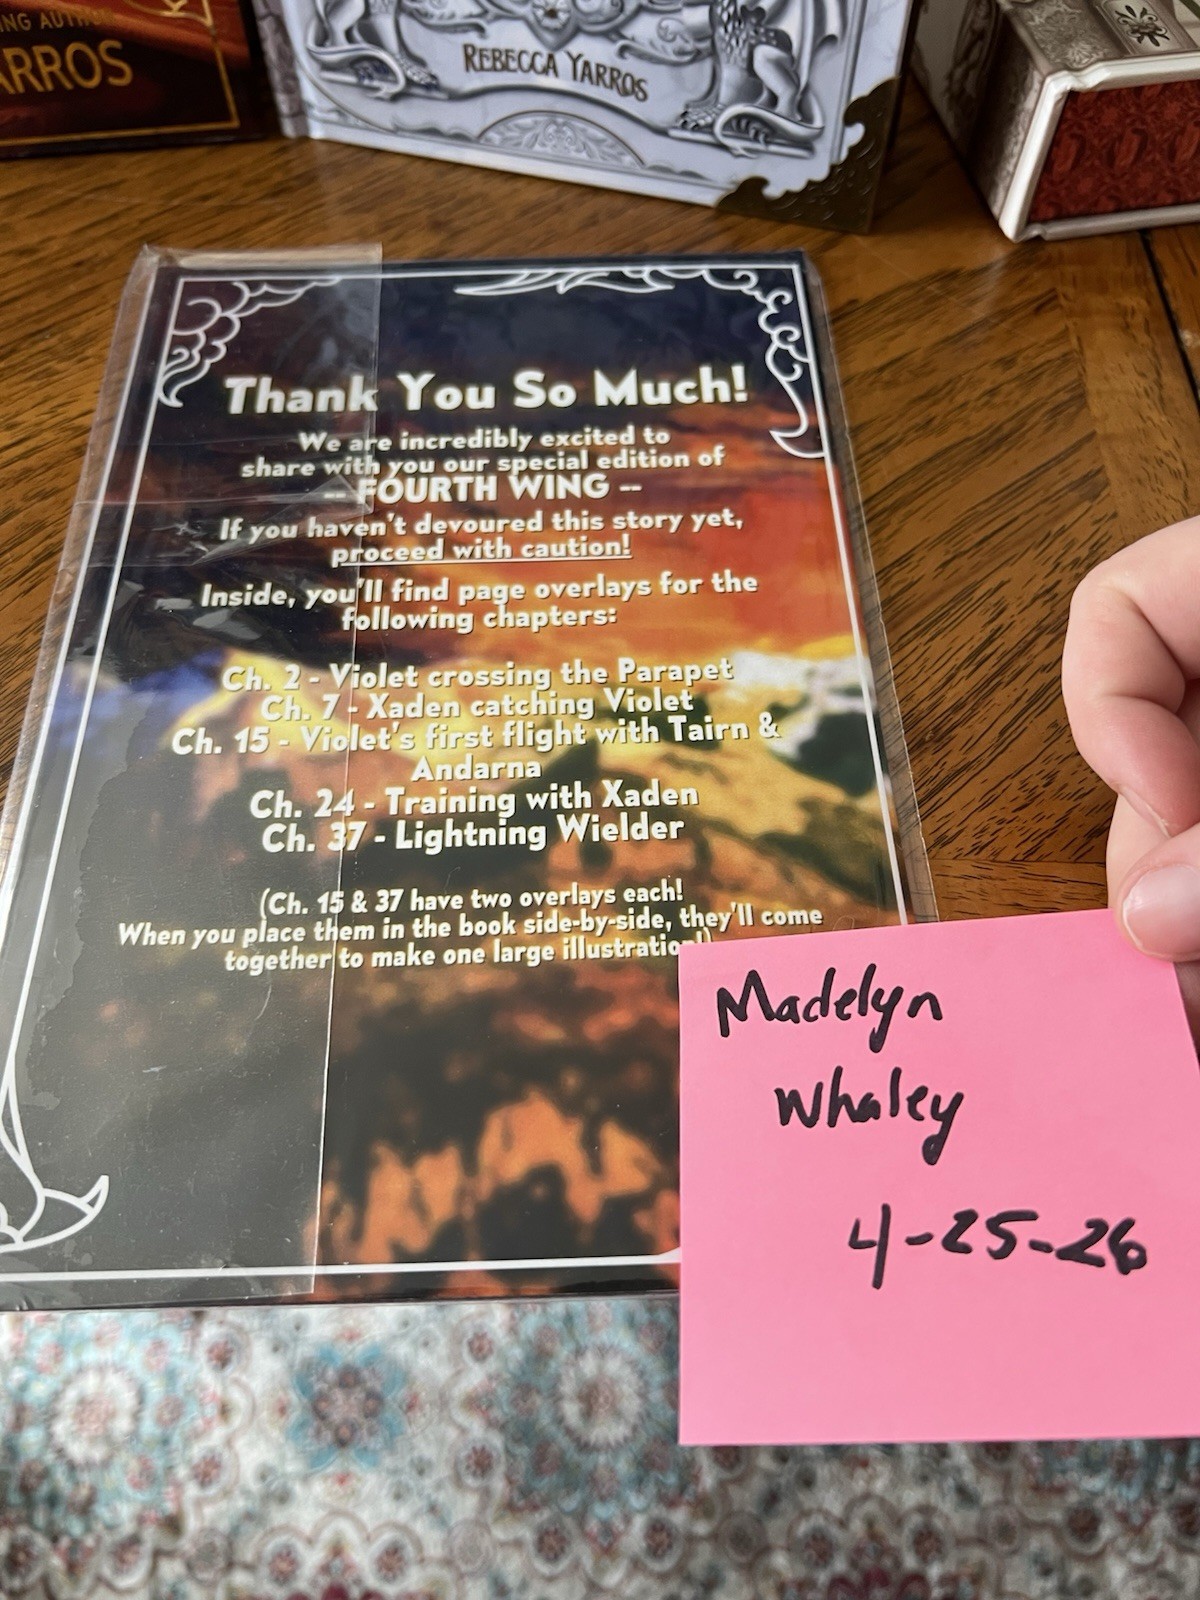 ING AUTH
ARROS
REBECCA YARROS
Thank You So Much!
We are incredibly excited to
share with you our special edition of
-- FOURTH WING --
If you haven't devoured this story yet,
proceed with caution!
Inside, you'll find page overlays for the
following chapters:
Ch. 2 - Violet crossing the Parapet
Ch. 7 - Xaden catching Violet
Ch. 15 - Violet's first flight with Tairn &
Andarna
Ch. 24 - Training with Xaden
Ch. 37 - Lightning Wielder
(Ch. 15 & 37 have two overlays each!
When you place them in the book side-by-side, they'll come
together to make one large illustration!)
Madelyn
Whaley
4-25-26